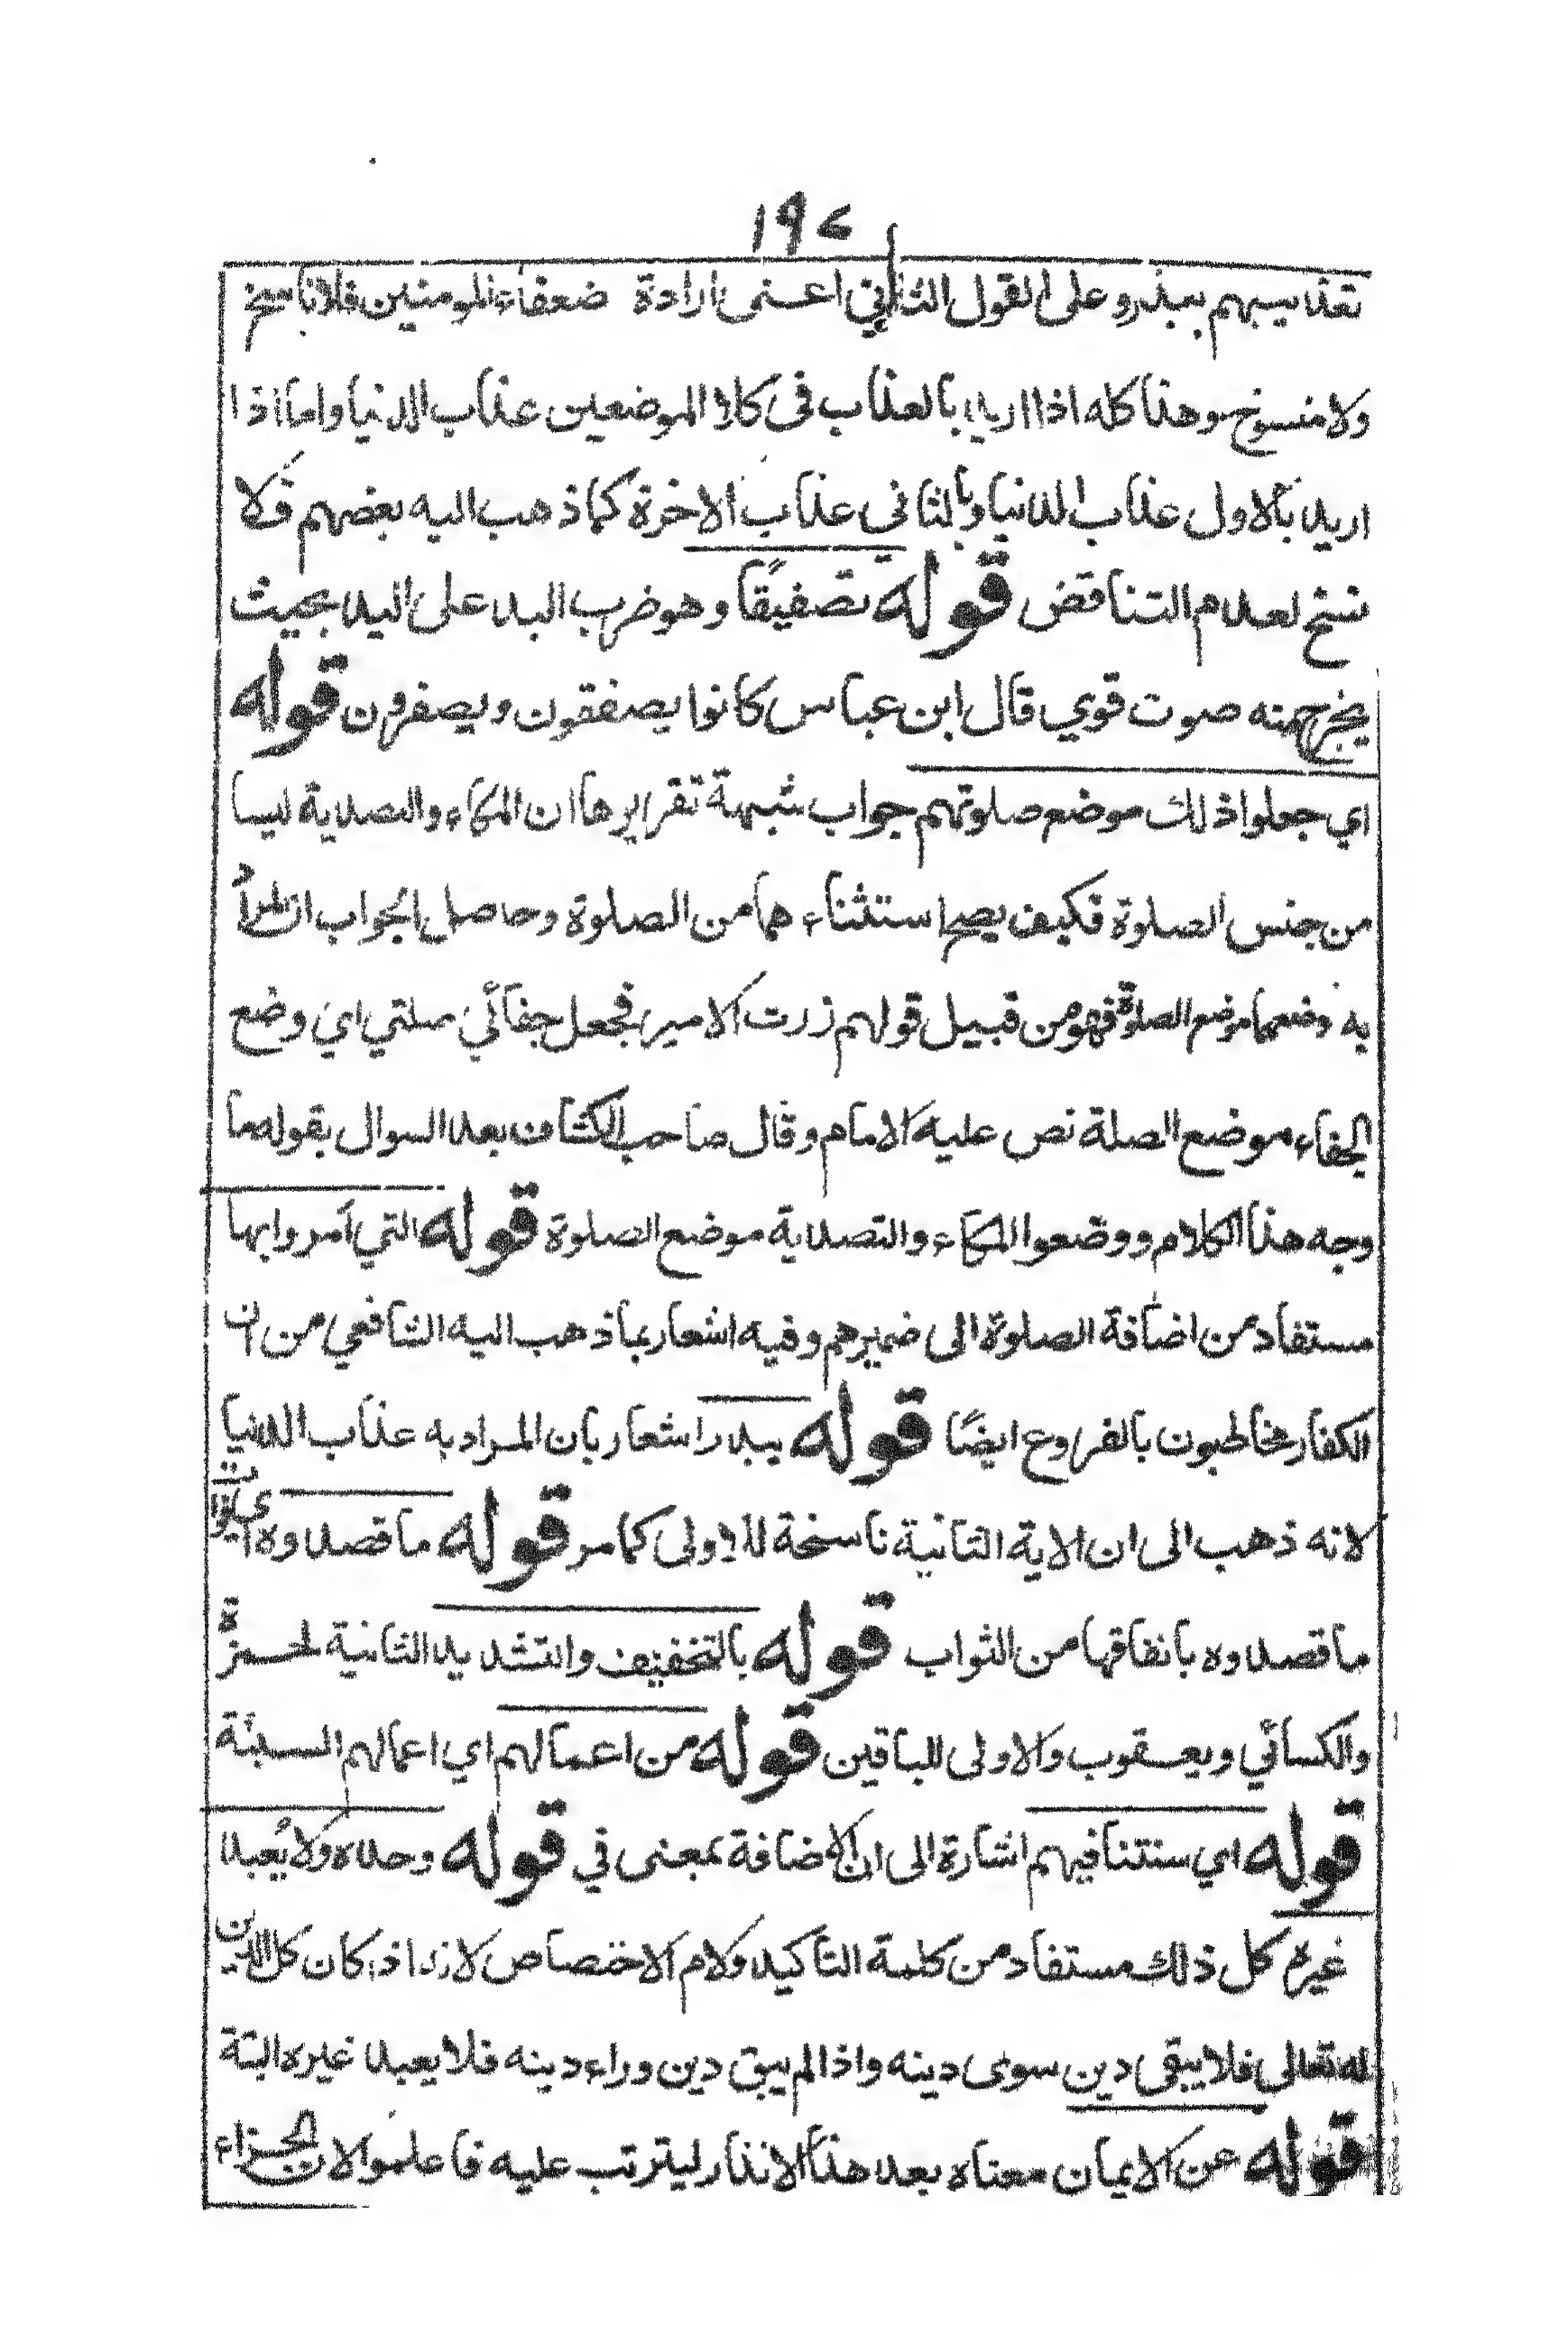 ١٩٧
تعذيبهم ببدر وعلى القول الثاني اعنى ارادة ضعفاء المومنين فلا ناسخ
ولا منسوخ وهذا كله اذا اريد بالعذاب فى كلا الموضعين عذاب الدنيا واما اذا
اريد بالاول عذاب الدنيا وبالثاني عذاب الاخرة كما ذهب اليه بعضهم فلا
نسخ لعدم التناقض قوله تصفيقًا وهو ضرب اليد على اليد بحيث
يخرج منه صوت قوي قال ابن عباس كانوا يصفقون ويصفرون قوله
اي جعلوا ذلك موضع صلوتهم جواب شبهة تقريرها ان المكاء والتصدية ليسا
من جنس الصلوة فكيف يصح استثناء هما من الصلوة وحاصل الجواب ان المراد
به وضعهما موضع الصلوة فهو من قبيل قولهم زرت الامير فجعل جفائي صلتي اي وضع
الجفاء موضع الصلة نص عليه الامام وقال صاحب الكشاف بعد السوال بقوله ما
وجه هذا الكلام ووضعوا المكاء والتصدية موضع الصلوة قوله التي أمروا بها
مستفاد من اضافة الصلوة الى ضميرهم وفيه اشعار بما ذهب اليه الشافعي من ان
الكفار مخاطبون بالفروع ايضًا قوله ببدر اشعار بان المراد به عذاب الدنيا
لانه ذهب الى ان الاية الثانية ناسخة للاولى كما مر قوله ما قصدوه اي
ما قصدوه بانفاقها من الثواب قوله بالتخفيف والتشديد الثانية لحمزة
والكسائي ويعقوب والاولى للباقين قوله من اعمالهم اي اعمالهم السيئة
قوله اي سنتنا فيهم اشارة الى ان الاضافة بمعنى في قوله وحده ولا يُعبد
غيره كل ذلك مستفاد من كلمة التأكيد ولام الاختصاص لانه اذا كان كل الدين
لله تعالى فلا يبقى دين سوى دينه واذا لم يبق دين وراء دينه فلا يعبد غيره البتة
قوله عن الايمان معناه بعد هذا الانذار ليترتب عليه فاعلموا لان الجزاء